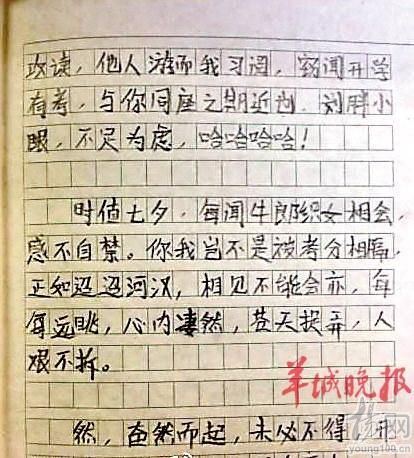 攻读，他人游而我习阅，窃闻开学
有考，与你同座之期近也。刘胖小
眼，不足为虑，哈哈哈哈！
时值七夕，每闻牛郎织女相会，
感不自禁。你我岂不是被考分相隔，
正如迢迢河汉，相见不能会亦，每
每远眺，心内凄然，苍天捉弄，人
艰不拆。
羊城晚报
然，奋然而起，未必不得，开
young100.cn